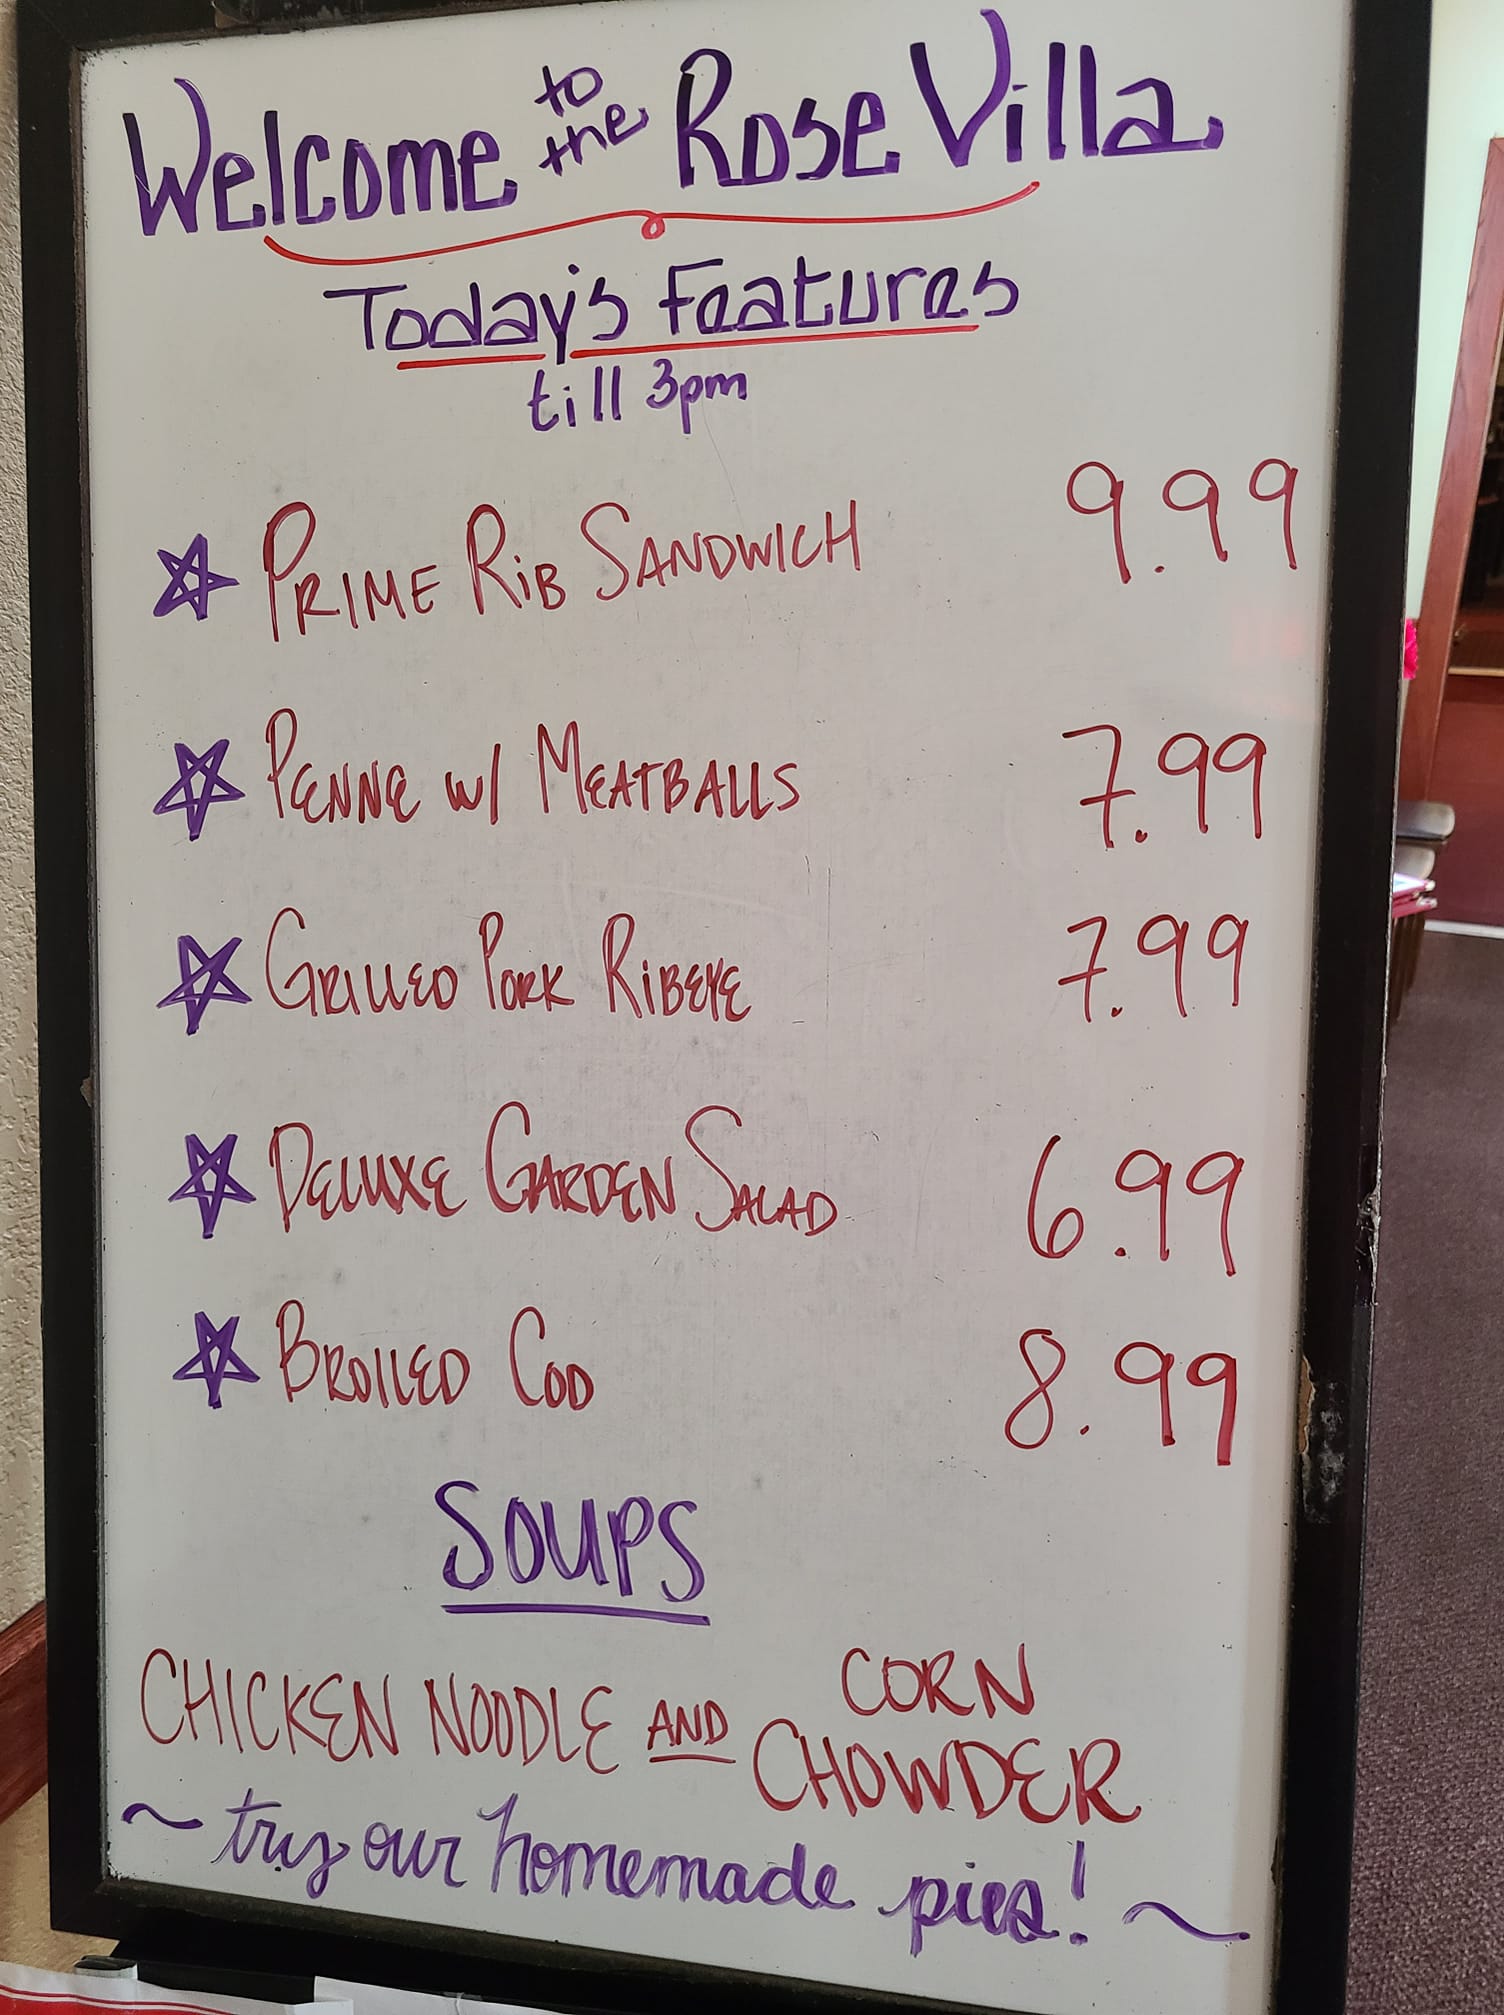 Welcome to the Rose Villa
Today's Features
till 3pm
PRIME RIB SANDWICH 9.99
PENNE W/ MEATBALLS 7.99
GRILLED PORK RIBEYE 7.99
DELUXE GARDEN SALAD 6.99
BROILED COD 8.99
SOUPS
CHICKEN NOODLE AND CORN CHOWDER
~ try our homemade pies! ~